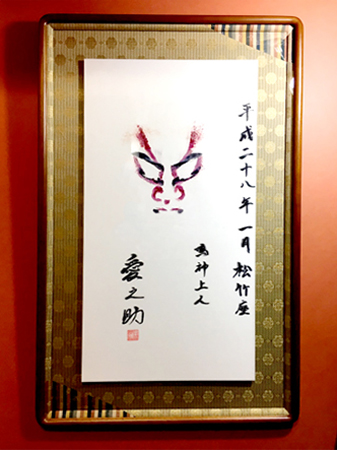 平成二十八年 一月 松竹座
鳴神上人
愛之助